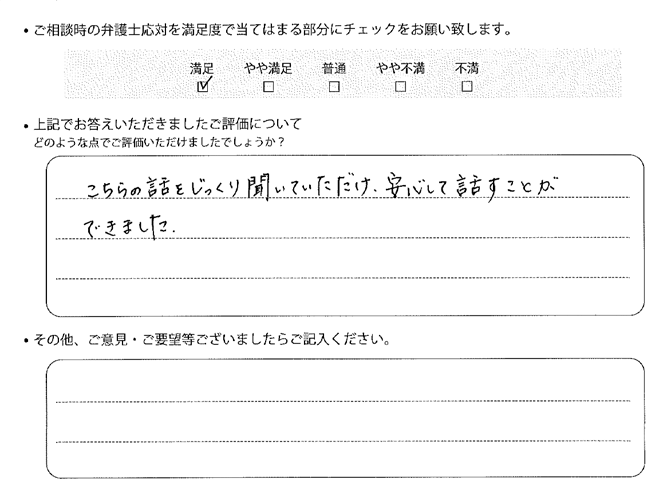 • ご相談時の弁護士応対を満足度で当てはまる部分にチェックをお願い致します。
満足 やや満足 普通 やや不満 不満
☑ ☐ ☐ ☐ ☐
• 上記でお答えいただきましたご評価について
どのような点でご評価いただけましたでしょうか？
こちらの話をじっくり聞いていただけ、安心して話すことが
できました.
• その他、ご意見・ご要望等ございましたらご記入ください。